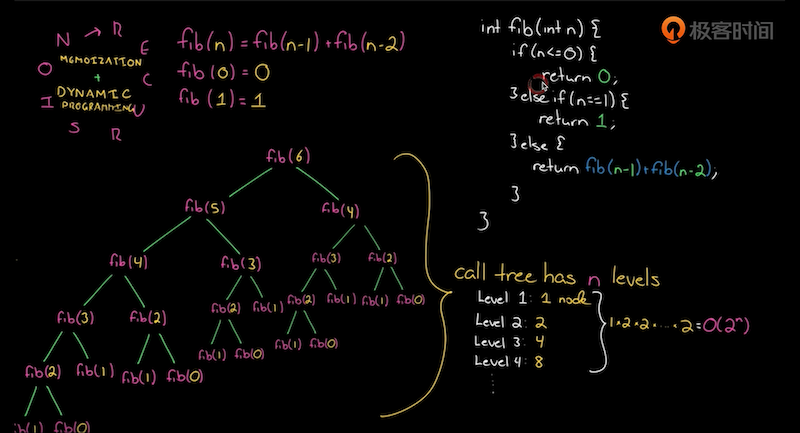 RECURSION
MEMOIZATION
+
DYNAMIC
PROGRAMMING
fib(n) = fib(n-1) + fib(n-2)
fib(0) = 0
fib(1) = 1
极客时间
int fib(int n) {
if(n<=0) {
return 0;
}else if(n==1) {
return 1;
}else {
return fib(n-1)+fib(n-2);
}
}
fib(6)
fib(5) fib(4)
fib(4) fib(3) fib(3) fib(2)
fib(3) fib(2) fib(2) fib(1) fib(2) fib(1) fib(1) fib(0)
fib(2) fib(1) fib(1) fib(0) fib(1) fib(0) fib(1) fib(0)
ib(1) fib(0)
call tree has n levels
Level 1: 1 node
Level 2: 2
Level 3: 4
Level 4: 8
1*2*2*....*2=O(2ⁿ)